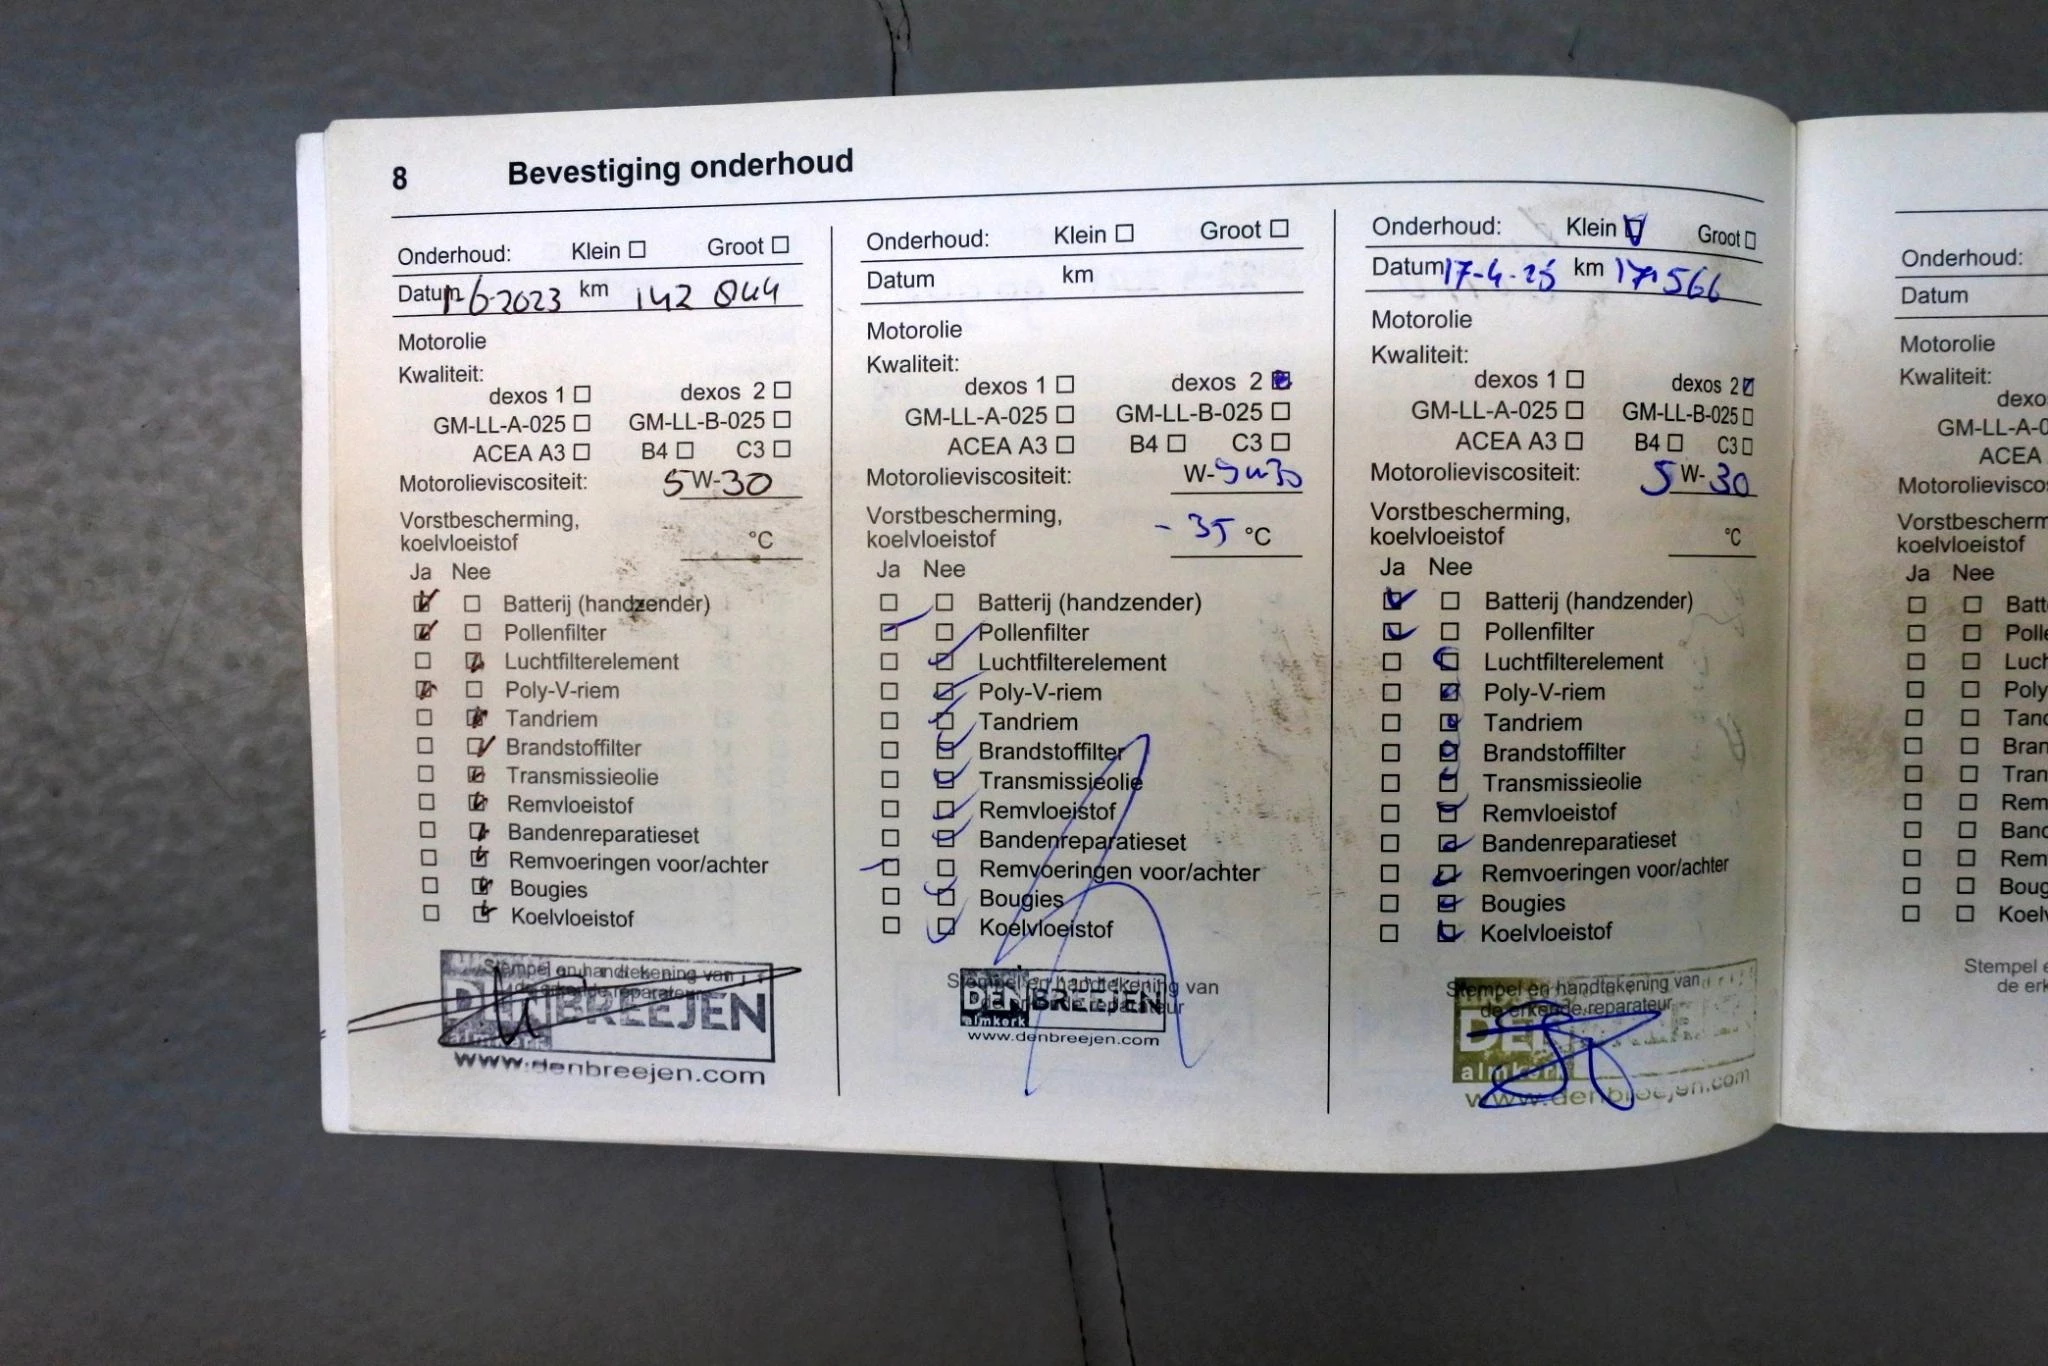 8 Bevestiging onderhoud
Onderhoud: Klein Groot
Datum 1-6-2023 km 142 844
Motorolie
Kwaliteit:
dexos 1 dexos 2
GM-LL-A-025 GM-LL-B-025
ACEA A3 B4 C3
Motorolieviscositeit: 5 W-30
Vorstbescherming,
koelvloeistof °C
Ja Nee
Batterij (handzender)
Pollenfilter
Luchtfilterelement
Poly-V-riem
Tandriem
Brandstoffilter
Transmissieolie
Remvloeistof
Bandenreparatieset
Remvoeringen voor/achter
Bougies
Koelvloeistof
Stempel en handtekening van
de erkende reparateur
DEN BREEJEN
almkerk
www.denbreejen.com
Onderhoud: Klein Groot
Datum km
Motorolie
Kwaliteit:
dexos 1 dexos 2
GM-LL-A-025 GM-LL-B-025
ACEA A3 B4 C3
Motorolieviscositeit: W-5w30
Vorstbescherming,
koelvloeistof -35 °C
Ja Nee
Batterij (handzender)
Pollenfilter
Luchtfilterelement
Poly-V-riem
Tandriem
Brandstoffilter
Transmissieolie
Remvloeistof
Bandenreparatieset
Remvoeringen voor/achter
Bougies
Koelvloeistof
Stempel en handtekening van
de erkende reparateur
DEN BREEJEN
almkerk
www.denbreejen.com
Onderhoud: Klein Groot
Datum 17-4-25 km 171566
Motorolie
Kwaliteit:
dexos 1 dexos 2
GM-LL-A-025 GM-LL-B-025
ACEA A3 B4 C3
Motorolieviscositeit: 5 W-30
Vorstbescherming,
koelvloeistof °C
Ja Nee
Batterij (handzender)
Pollenfilter
Luchtfilterelement
Poly-V-riem
Tandriem
Brandstoffilter
Transmissieolie
Remvloeistof
Bandenreparatieset
Remvoeringen voor/achter
Bougies
Koelvloeistof
Stempel en handtekening van
de erkende reparateur
DEN
almkerk
www.denbreejen.com
Onderhoud:
Datum
Motorolie
Kwaliteit:
dexo
GM-LL-A-0
ACEA
Motorolievisco
Vorstbescherm
koelvloeistof
Ja Nee
Batt
Polle
Luch
Poly
Tand
Bran
Tran
Rem
Band
Rem
Boug
Koelv
Stempel e
de erk